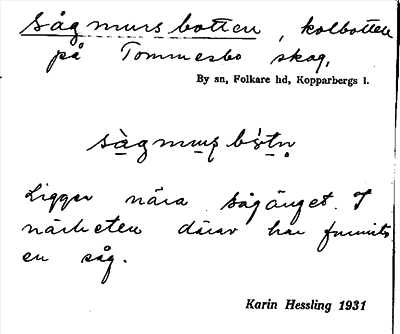 Sågmursbotten, kolbotten
på Tommesbo skog.
By sn, Folkare hd, Kopparbergs l.
sàgmurs bòtn
Ligger nära sågänget. I
närheten därav har funnits
en såg.
Karin Hessling 1931